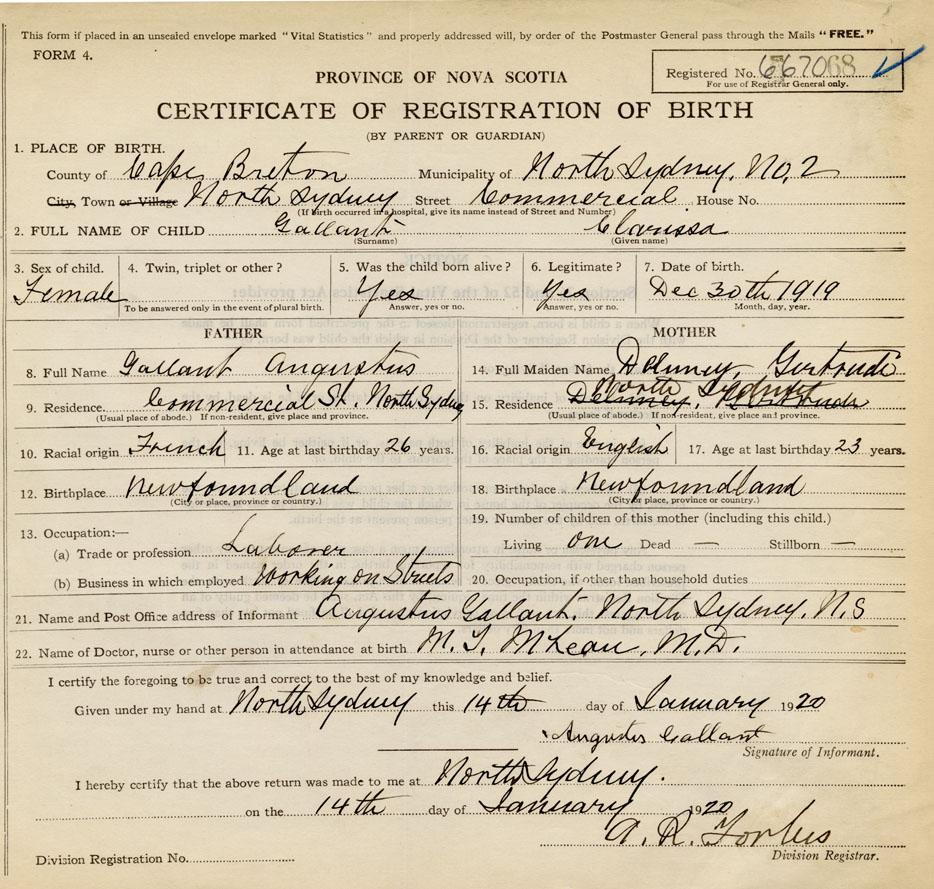 This form if placed in an unsealed envelope marked "Vital Statistics" and properly addressed will, by order of the Postmaster General pass through the Mails "FREE."
FORM 4.
Registered No. 667068
For use of Registrar General only.
PROVINCE OF NOVA SCOTIA
CERTIFICATE OF REGISTRATION OF BIRTH
(BY PARENT OR GUARDIAN)
1. PLACE OF BIRTH.
County of Cape Breton Municipality of North Sydney, No, 2
City, Town or Village North Sydney Street Commercial House No.
(If birth occurred in a hospital, give its name instead of Street and Number)
2. FULL NAME OF CHILD Gallant Clarissa
(Surname) (Given name)
3. Sex of child. 4. Twin, triplet or other? 5. Was the child born alive? 6. Legitimate? 7. Date of birth.
Female Yes Yes Dec 30th 1919
To be answered only in the event of plural birth. Answer, yes or no. Answer, yes or no. Month, day, year.
FATHER MOTHER
8. Full Name Gallant Augustus 14. Full Maiden Name Gertrude
North Sydney
9. Residence. Commercial St. North Sydney 15. Residence
(Usual place of abode.) If non-resident, give place and province. (Usual place of abode.) If non-resident, give place and province.
10. Racial origin French 11. Age at last birthday 26 years. 16. Racial origin English 17. Age at last birthday 23 years.
12. Birthplace Newfoundland 18. Birthplace Newfoundland
(City or place, province or country.) (City or place, province or country.)
13. Occupation:— 19. Number of children of this mother (including this child.)
(a) Trade or profession Laborer Living one Dead — Stillborn —
(b) Business in which employed Working on Streets 20. Occupation, if other than household duties
21. Name and Post Office address of Informant Augustus Gallant, North Sydney, N.S
22. Name of Doctor, nurse or other person in attendance at birth M. T. McLean, M.D.
I certify the foregoing to be true and correct to the best of my knowledge and belief.
Given under my hand at North Sydney this 14th day of January 1920
Augustus Gallant
Signature of Informant.
I hereby certify that the above return was made to me at North Sydney.
on the 14th day of January 1920
A. R. Forbes
Division Registration No. Division Registrar.